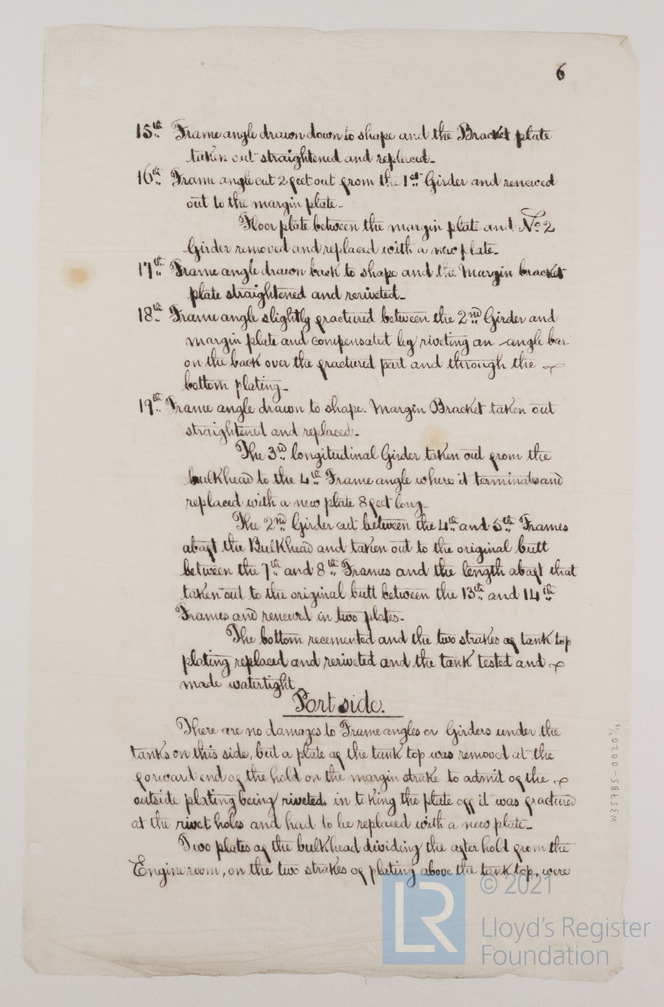 6
15th Frame angle drawn down to shape and the Bracket plate
taken out straightened and replaced.
16th Frame angle cut 2 feet out from the 1st Girder and renewed
out to the margin plate.
Floor plate between the margin plate and No 2
Girder removed and replaced with a new plate.
17th Frame angle drawn back to shape and the Margin bracket
plate straightened and reriveted.
18th Frame angle slightly fractured between the 2nd Girder and
margin plate and compensated by riveting an angle bar
on the back over the fractured part and through the
bottom plating.
19th Frame angle drawn to shape. Margin Bracket taken out
straightened and replaced.
The 3rd longitudinal Girder taken out from the
bulkhead to the 4th Frame angle where it terminates and
replaced with a new plate 8 feet long
The 2nd Girder cut between the 4th and 5th Frames
abaft the Bulkhead and taken out to the original butt
between the 7th and 8th Frames and the length abaft that
taken out to the original butt between the 13th and 14th
Frames and renewed in two plates.
The bottom recemented and the two strakes of tank top
plating replaced and reriveted and the tank tested and
made watertight
Port side.
There are no damages to Frame angles or Girders under the
tanks on this side, but a plate of the tank top was removed at the
forward end of the hold on the margin strake to admit of the
outside plating being riveted, in taking the plate off it was fractured
at the rivet holes and had to be replaced with a new plate.
Two plates of the bulkhead dividing the after hold from the
Engine room, on the two strakes of plating above the tank top, were
© 2021
LR
Lloyd's Register
Foundation